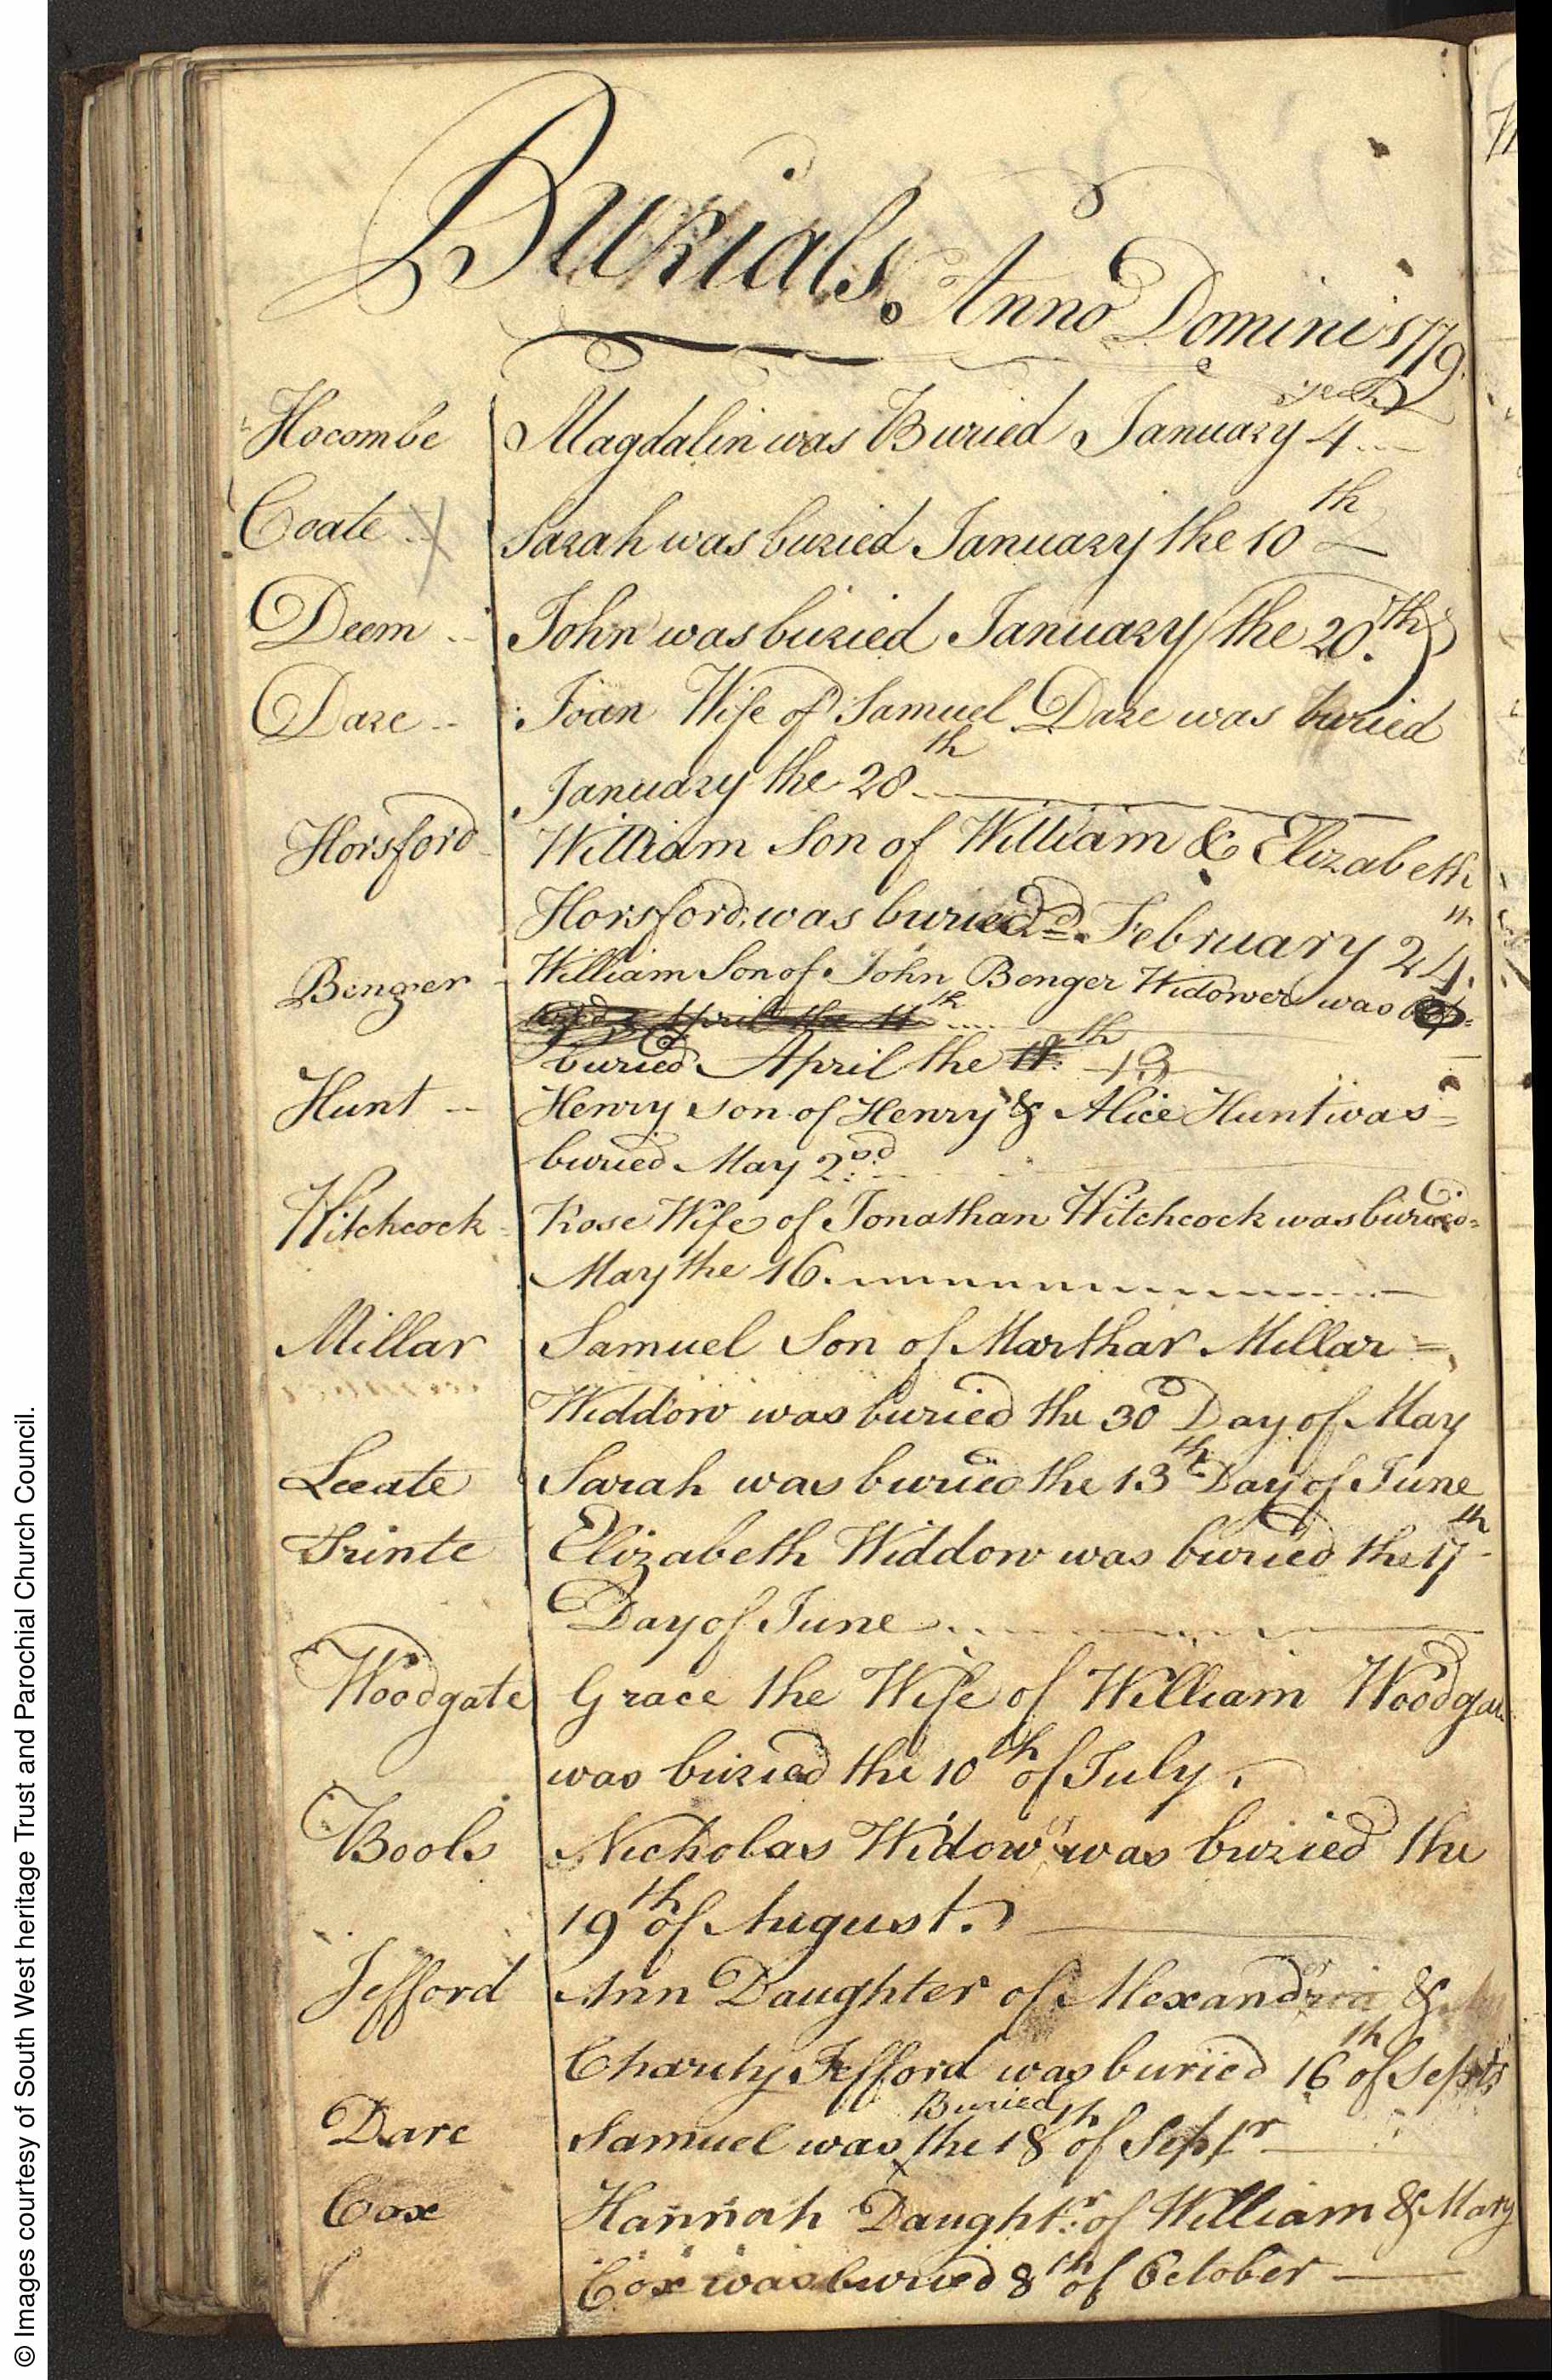 Burials. Anno Domini 1779.
Hocombe Magdalin was Buried January 4
Coate Sarah was buried January the 10th
Deem John was buried January the 20th
Dare Joan Wife of Samuel Dare was buried
January the 28th
Horsford William Son of William & Elizabeth
Horsford was buried February 24th
Benger William Son of John Benger Widower was
April the 11th
buried April the 11th 13
Hunt Henry son of Henry & Alice Hunt was
buried May 2nd
Hitchcock Rose Wife of Jonathan Hitchcock was buried
May the 16.
Millar Samuel Son of Marthar Millar
Widdow was buried the 30 Day of May
Sarah was buried the 13th Day of June
Elizabeth Widdow was buried the 17th
Day of June
Woodgate Grace the Wife of William Woodga
was buried the 10th of July.
Bools Nicholas Widowr was buried the
19th of August.
Jefford Ann Daughter of &
Charity Jefford was buried 16th of Septr
Dare Samuel was Buried the 18th of Septr
Cox Hannah Daughtr. of William & Mary
Cox was buried 8th of October
© Images courtesy of South West heritage Trust and Parochial Church Council.